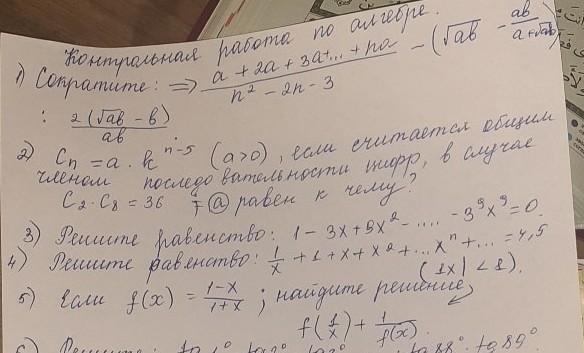 Контрольная работа по алгебре.
1) Сократите: ⇒ (a + 2a + 3a+... + na)/(n² - 2n - 3) - (√ab - ab/(a+√ab))
: 2(√ab - b)/ab
2) Cn = a · k^(n-5) (a>0), если считается общим
членом последовательности цифр, в случае
C2 · C8 = 36 (a) равен к чему?
3) Решите равенство: 1 - 3x + 9x² - .... - 3⁹x⁹ = 0.
4) Решите равенство: 1/x + 1 + x + x² + ... xⁿ + ... = 4,5
(|x| < 1).
5) Если f(x) = (1-x)/(1+x); найдите решение
f(1/x) + 1/f(x).
tg 88° · tg 89°